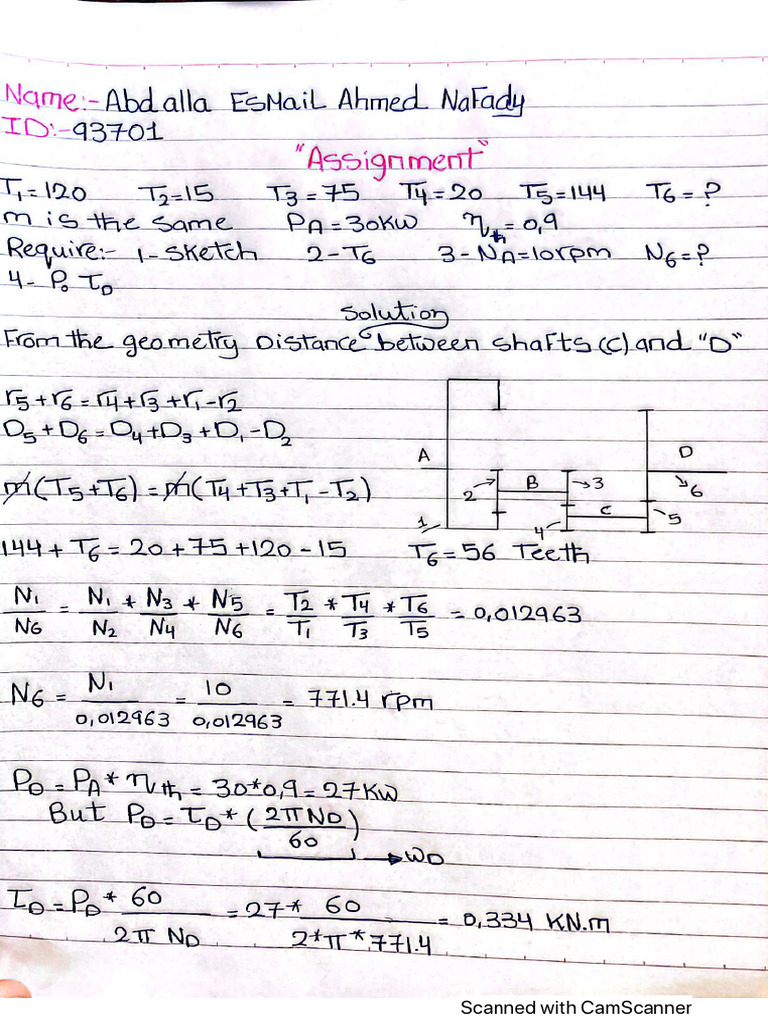 Name:- Abdalla EsMaiL Ahmed NaFady
ID:- 93701
"Assignment"
T1=120 T2=15 T3=75 T4=20 T5=144 T6=?
m is the same PA=30KW ηth=0,9
Require:- 1- Sketch 2-T6 3-NA=10rpm N6=?
4- Po τD
Solution
From the geometry Distance between shafts (C) and "D"
r5+r6=r4+r3+r1-r2
D5+D6=D4+D3+D1-D2
m(T5+T6)=m(T4+T3+T1-T2)
A
B
C
D
1
2
3
4
5
6
144+T6=20+75+120-15 T6=56 Teeth
N1/N6 = N1/N2 * N3/N4 * N5/N6 = T2/T1 * T4/T3 * T6/T5 = 0,012963
N6 = N1/0,012963 = 10/0,012963 = 771.4 rpm
PD=PA*ηth=30*0,9=27KW
But PD=τD*(2πND/60)
WD
τD=PD*60/2πND=27*60/2*π*771.4=0,334 KN.m
Scanned with CamScanner